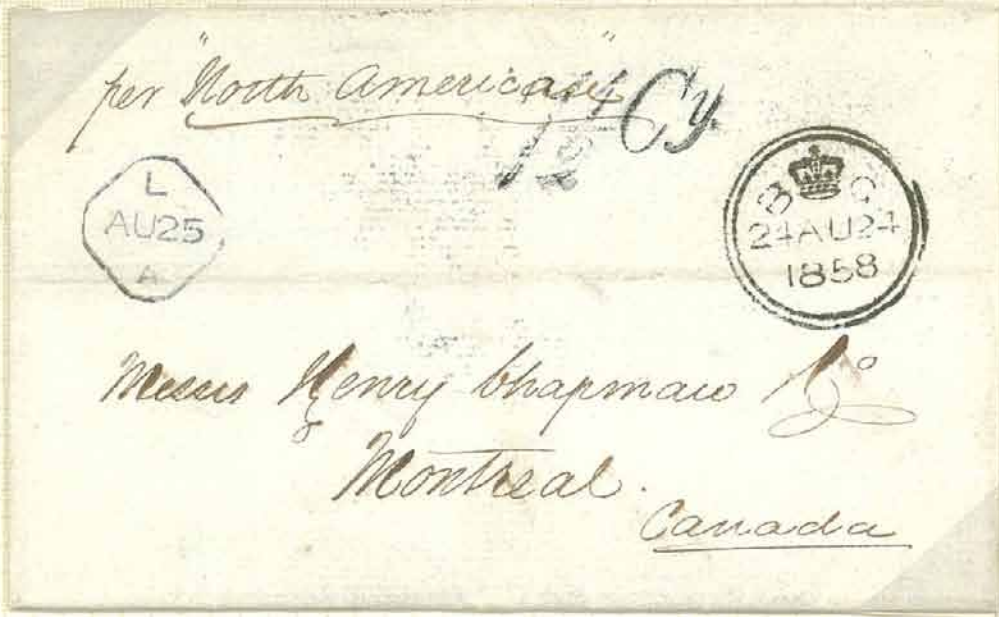 per "North American"
1/1½ Cy.
L
AU25
A
B C
24AU24
1858
Messrs Henry Chapman & Co
Montreal.
Canada